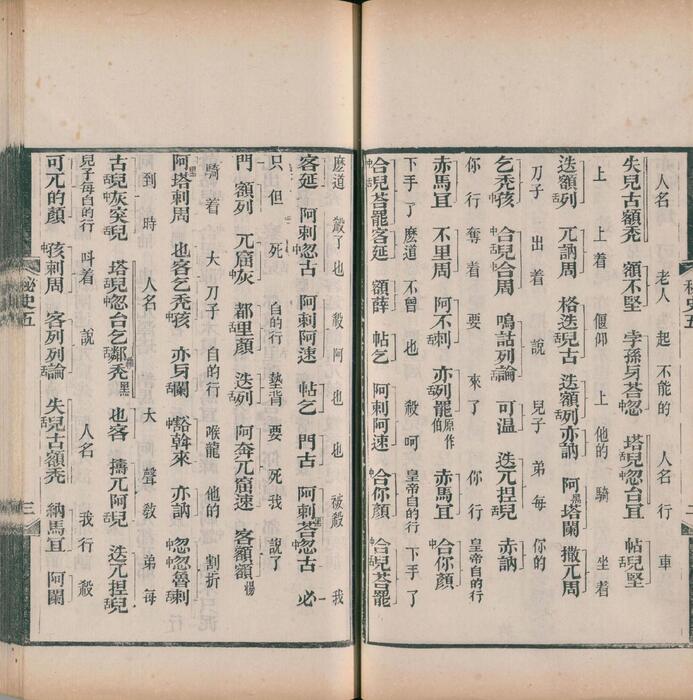 人名 老人 起 不能的 人名 行 車
失兒古額禿 額不堅 孛孫勺荅忽 塔兒忽台亘 帖兒堅
上 上着 偃仰 上 他的 騎 坐着
迭額列 兀訥周 格迭兒古 迭額列亦訥 阿塔闌 撒兀周
刀子 出着 說 兒子 弟每 你的
乞禿孩 合兒合周 鳴詁列論 可溫 迭兀捏兒 赤訥
你行 奪着 要 來了 你 行 皇帝自的行
赤馬亘 不里周 阿不剌 亦列罷 原作伯 赤馬亘 合你顏
下手了 麽道 不曾 也 殺 呵 皇帝自的行 下手了
合兒荅罷客延 額薛 帖乞 阿剌阿速 合你顏 合兒荅罷
麽道 殺了也 殺 阿 也 也 被殺 我
客延 阿剌忽古 阿剌阿速 帖乞 門古 阿剌荅忽古 必
只 但 死 自的行 墊背 要 死我 說了
門 額列 兀窟灰 都里顏 迭列 阿奔兀窟速 客額額
騎着 大刀子 自的行 喉龍 他的 割折
阿塔剌周 也客乞禿孩 亦勺闌 豁斡來 亦訥 忽忽魯剌
到 時 人名 大 聲 敎 弟每
古兒灰突兒 塔兒忽台乞鄰禿黑 也客 擣兀阿兒 迭兀捏兒
兒子每自的行 叫着 說 人名 我行 殺
可兀的顏 孩剌周 客列列論 失兒古額禿 納馬亘 阿闌
秘史五
三